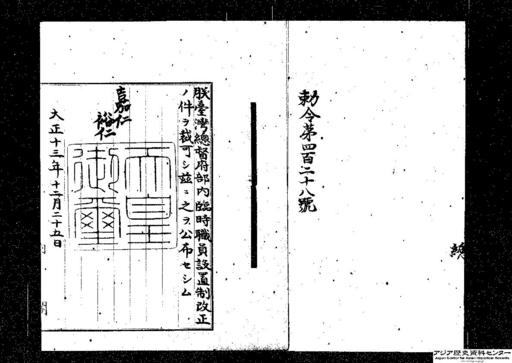 勅令第四百二十八號
朕臺灣總督府部内臨時職員設置制改正
ノ件ヲ裁可シ茲ニ之ヲ公布セシム
嘉仁
裕仁
天皇
御璽
大正十三年十二月二十五日
アジア歴史資料センター
Japan Center for Asian Historical Records